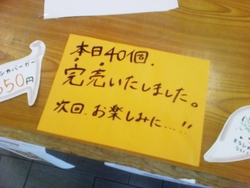 本日40個、
完売いたしました。
次回、お楽しみに……!!
シカバーガー
550円